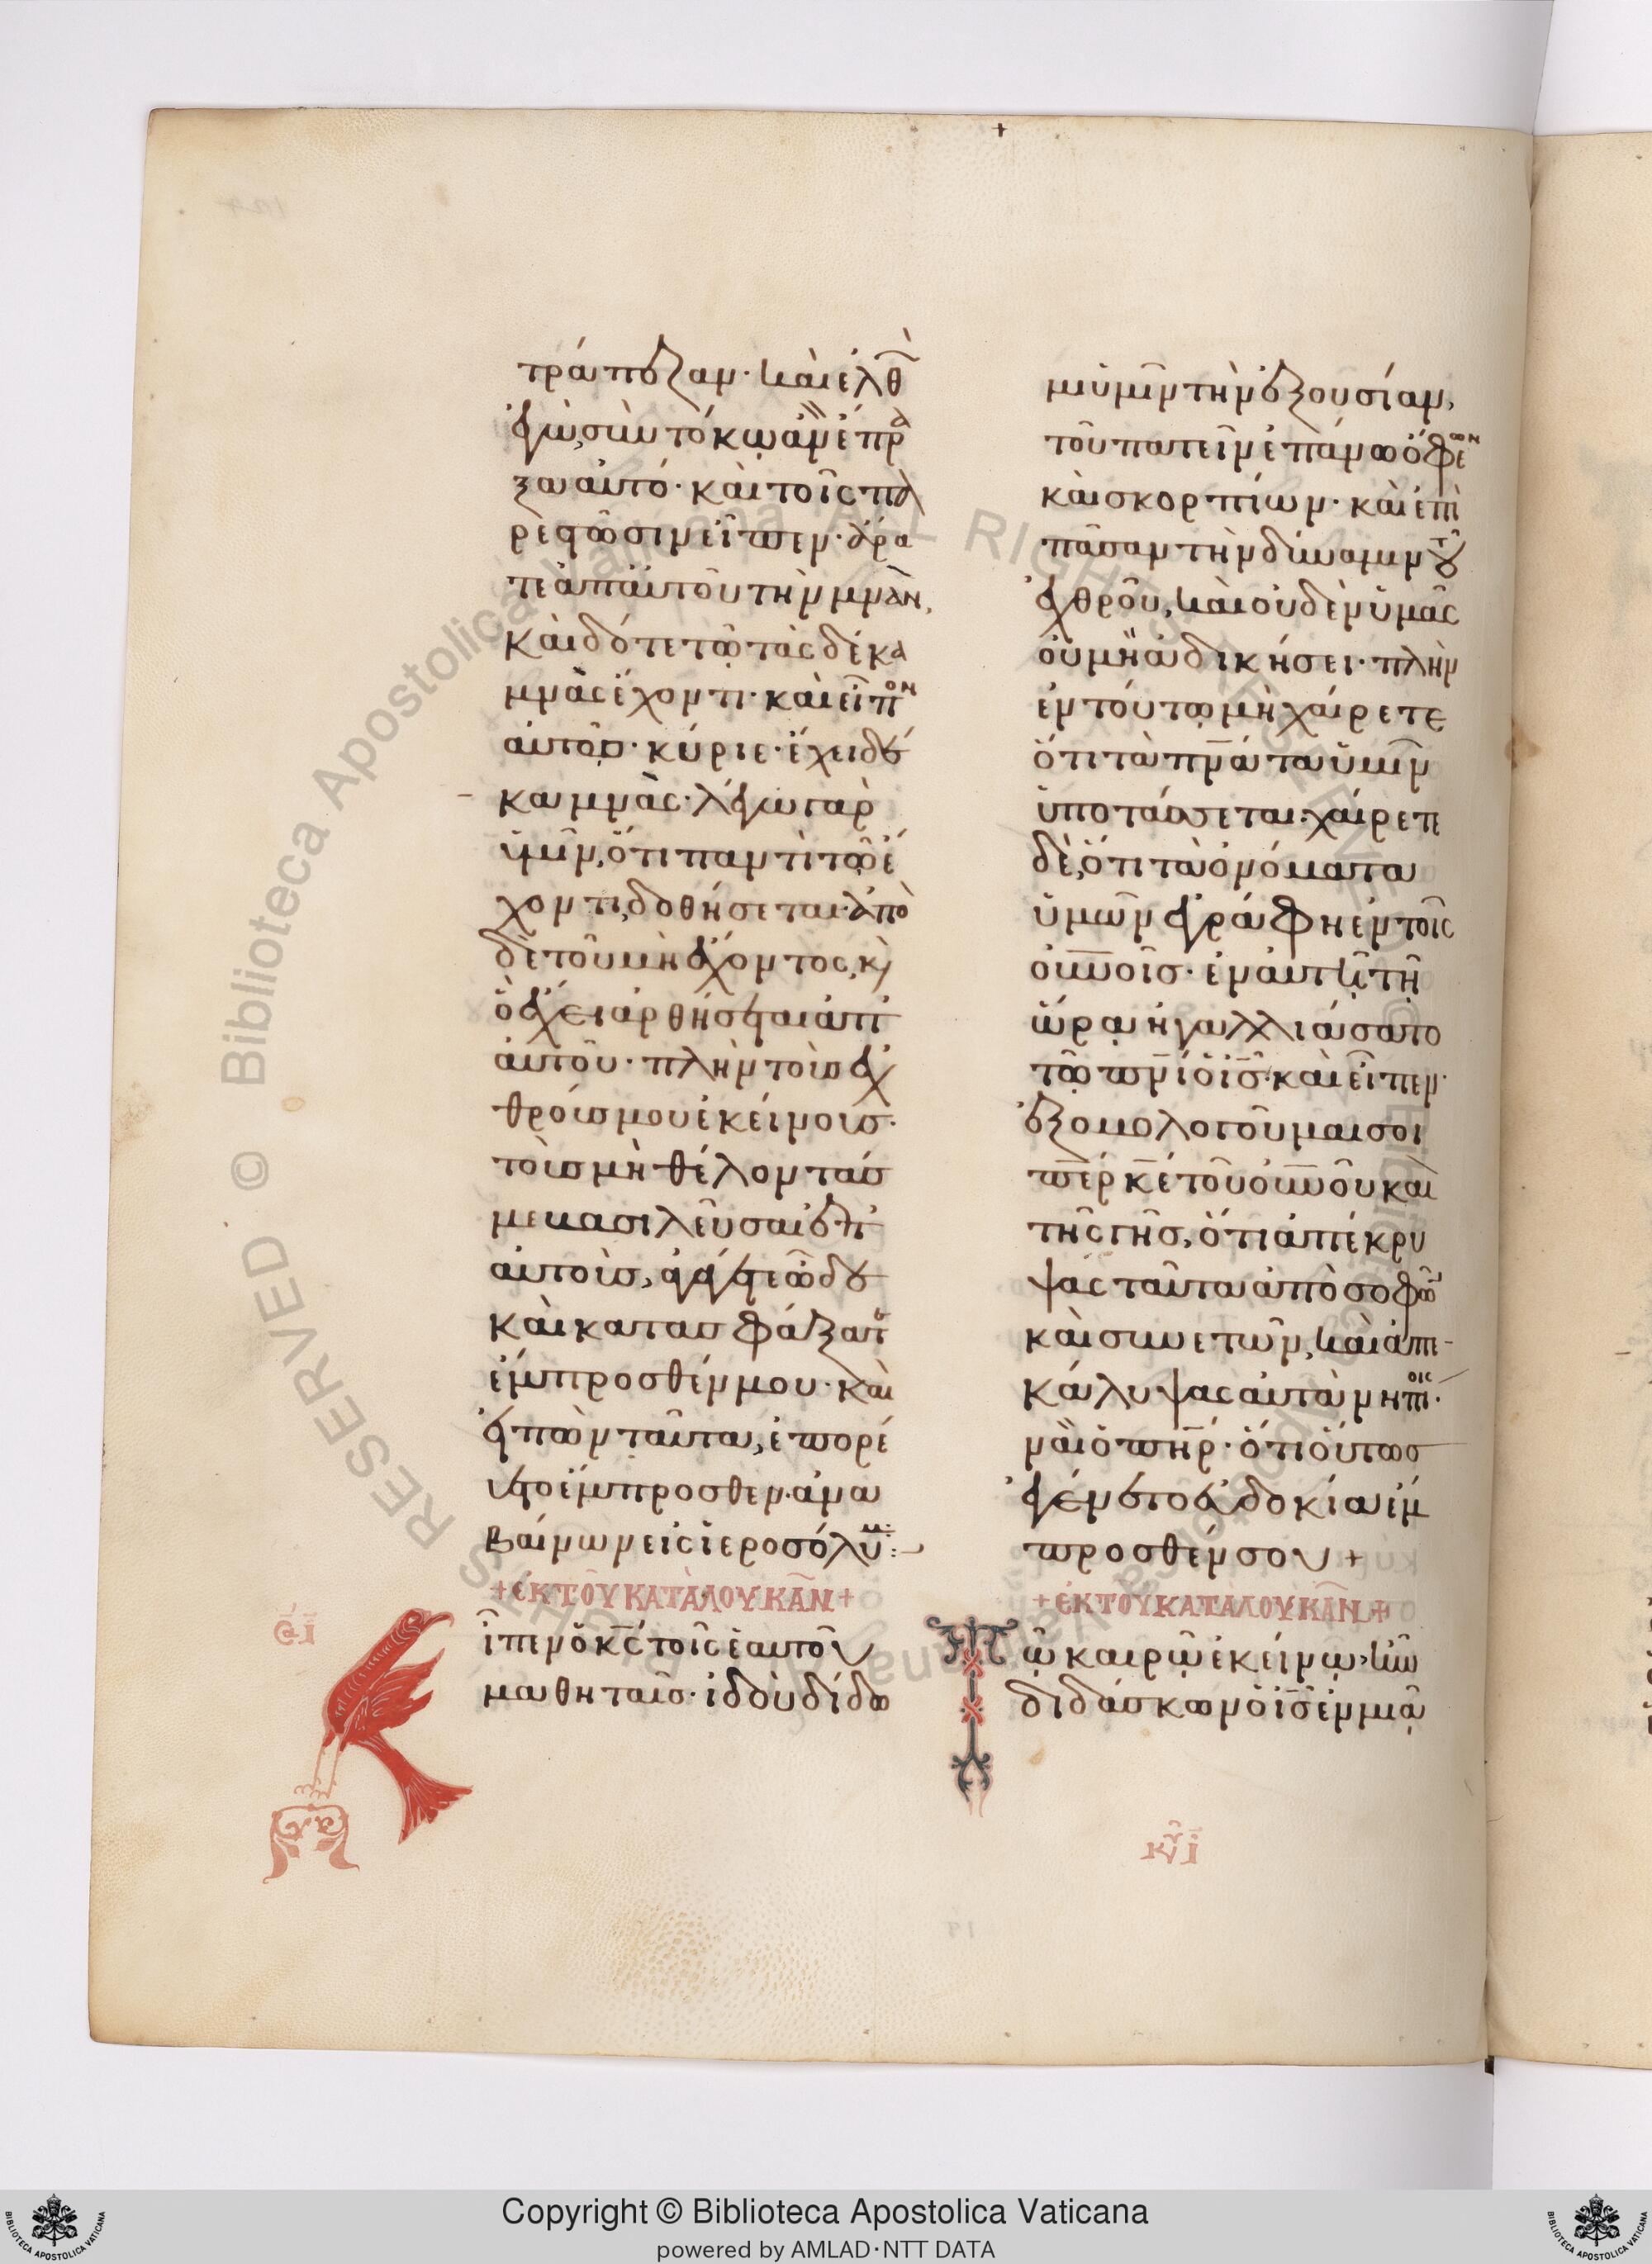 τράπεζαν· καὶ ἐλθ
ἐγὼ, σὺν τόκω ἂν ἔπρα
ξα αὐτό· καὶ τοῖς πα
ρεστῶσιν εἶπεν· ἄρα
τε ἀπ' αὐτοῦ τὴν μνᾶν,
καὶ δότε τῶ τὰς δέκα
μνᾶς ἔχοντι· καὶ εἶπον
αὐτῶ· κύριε· ἔχει δέ
κα μνᾶς· λέγω γὰρ
ὑμῖν, ὅτι παντὶ τῶ ἔ
χοντι, δοθήσεται· ἀπὸ
δὲ τοῦ μὴ ἔχοντος, κ
ὃ ἔχει ἀρθήσεται ἀπ'
αὐτοῦ· πλὴν τοὺς ἐχ
θρούς μου ἐκείνους·
τοὺς μὴ θέλοντάς
με βασιλεῦσαι ἐπ'
αὐτοὺς, ἀγάγετε ὧδε
καὶ κατασφάξατε
ἔμπροσθέν μου· καὶ
εἰπὼν ταῦτα, ἐπορέ
υετο ἔμπροσθεν· ἀνα
βαίνων εἰς ἱεροσόλυμ:
+ ἐκ τοῦ κατὰ λουκᾶν +
ἶπεν ὁ κς τοῖς ἑαυτοῦ
μαθηταῖς· ἰδοὺ δίδω
μι ὑμῖν τὴν ἐξουσίαν,
τοῦ πατεῖν ἐπάνω ὄφεων
καὶ σκορπίων· καὶ ἐπὶ
πᾶσαν τὴν δύναμιν τοῦ
ἐχθροῦ, καὶ οὐδὲν ὑμᾶς
οὐ μὴ ἀδικήσει· πλὴν
ἐν τούτω μὴ χαίρετε
ὅτι τὰ πνάτα ὑμῖν
ὑποτάσσεται: χαίρετε
δὲ, ὅτι τὰ ὀνόματα
ὑμῶν ἐγράφη ἐν τοῖς
οὐνοῖς· ἐν αὐτῆ τῆ
ὥρα ἠγαλλιάσατο
τῶ πνι ὁ ις· καὶ εἶπεν·
ἐξομολογοῦμαι σοι
περ κε τοῦ οὐνοῦ καὶ
τῆς γῆς, ὅτι ἀπέκρυ
ψας ταῦτα ἀπὸ σοφῶν
καὶ συνετῶν, καὶ ἀπε
κάλυψας αὐτὰ νηπίοις·
ναὶ ὁ πηρ· ὅτι οὕτως
ἐγένετο εὐδοκία ἔμ
προσθέν σου +
+ ἐκ τοῦ κατὰ λουκᾶν +
Τῶ καιρῶ ἐκείνω, ἦν
διδάσκων ὁ ις ἐν μιᾶ